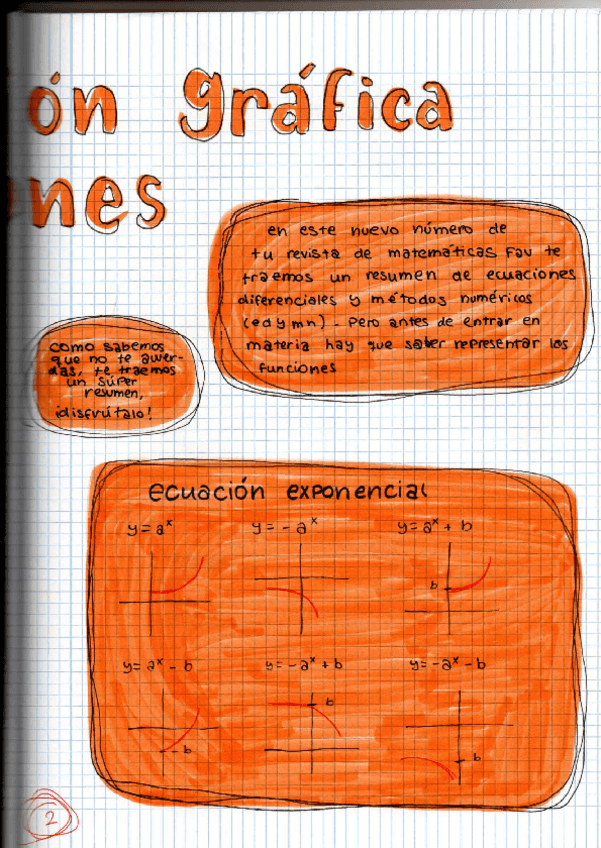 ón gráfica
nes
en este nuevo número de
tu revista de matemáticas Fav te
traemos un resumen de ecuaciones
diferenciales y métodos numéricos
(edymn). Pero antes de entrar en
materia hay que saber representar las
funciones
como sabemos
que no te acuer-
das, te traemos
un súper
resumen,
¡disfrútalo!
ecuación exponencial
y = aˣ y = - aˣ y = aˣ + b
b
y = aˣ - b y = - aˣ + b y = - aˣ - b
b
- b
b
2